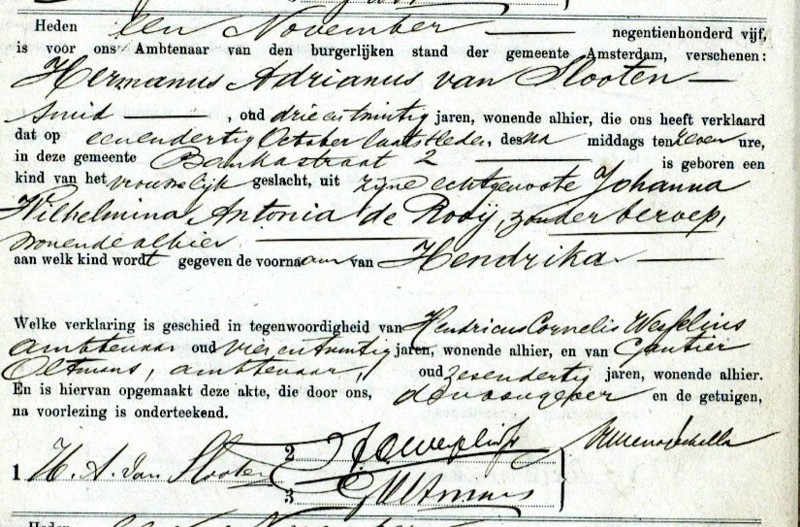 Heden een November negentienhonderd vijf,
is voor ons Ambtenaar van den burgerlijken stand der gemeente Amsterdam, verschenen:
Hermanus Adrianus van Slooten
smid, oud drie en twintig jaren, wonende alhier, die ons heeft verklaard
dat op een en dertig October laatstleden, des na middags ten zeven ure,
in deze gemeente Bankastraat 2 is geboren een
kind van het vrouwelijk geslacht, uit zijne echtgenoote Johanna
Wilhelmina Antonia de Rooij, zonder beroep,
wonende alhier
aan welk kind wordt gegeven de voornaam van Hendrika
Welke verklaring is geschied in tegenwoordigheid van Hendricus Cornelis Wesselius
ambtenaar oud vier en twintig jaren, wonende alhier, en van Gautier
Oltmans, ambtenaar, oud zes en dertig jaren, wonende alhier.
En is hiervan opgemaakt deze akte, die door ons, den aangever en de getuigen,
na voorlezing is onderteekend.
1 H. A. van Slooten 2
3 G Oltmans
Heden